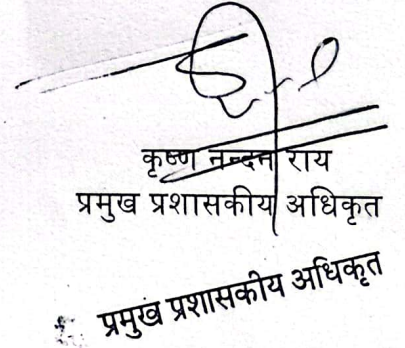 कृष्ण नन्दन राय
प्रमुख प्रशासकीय अधिकृत
प्रमुख प्रशासकीय अधिकृत